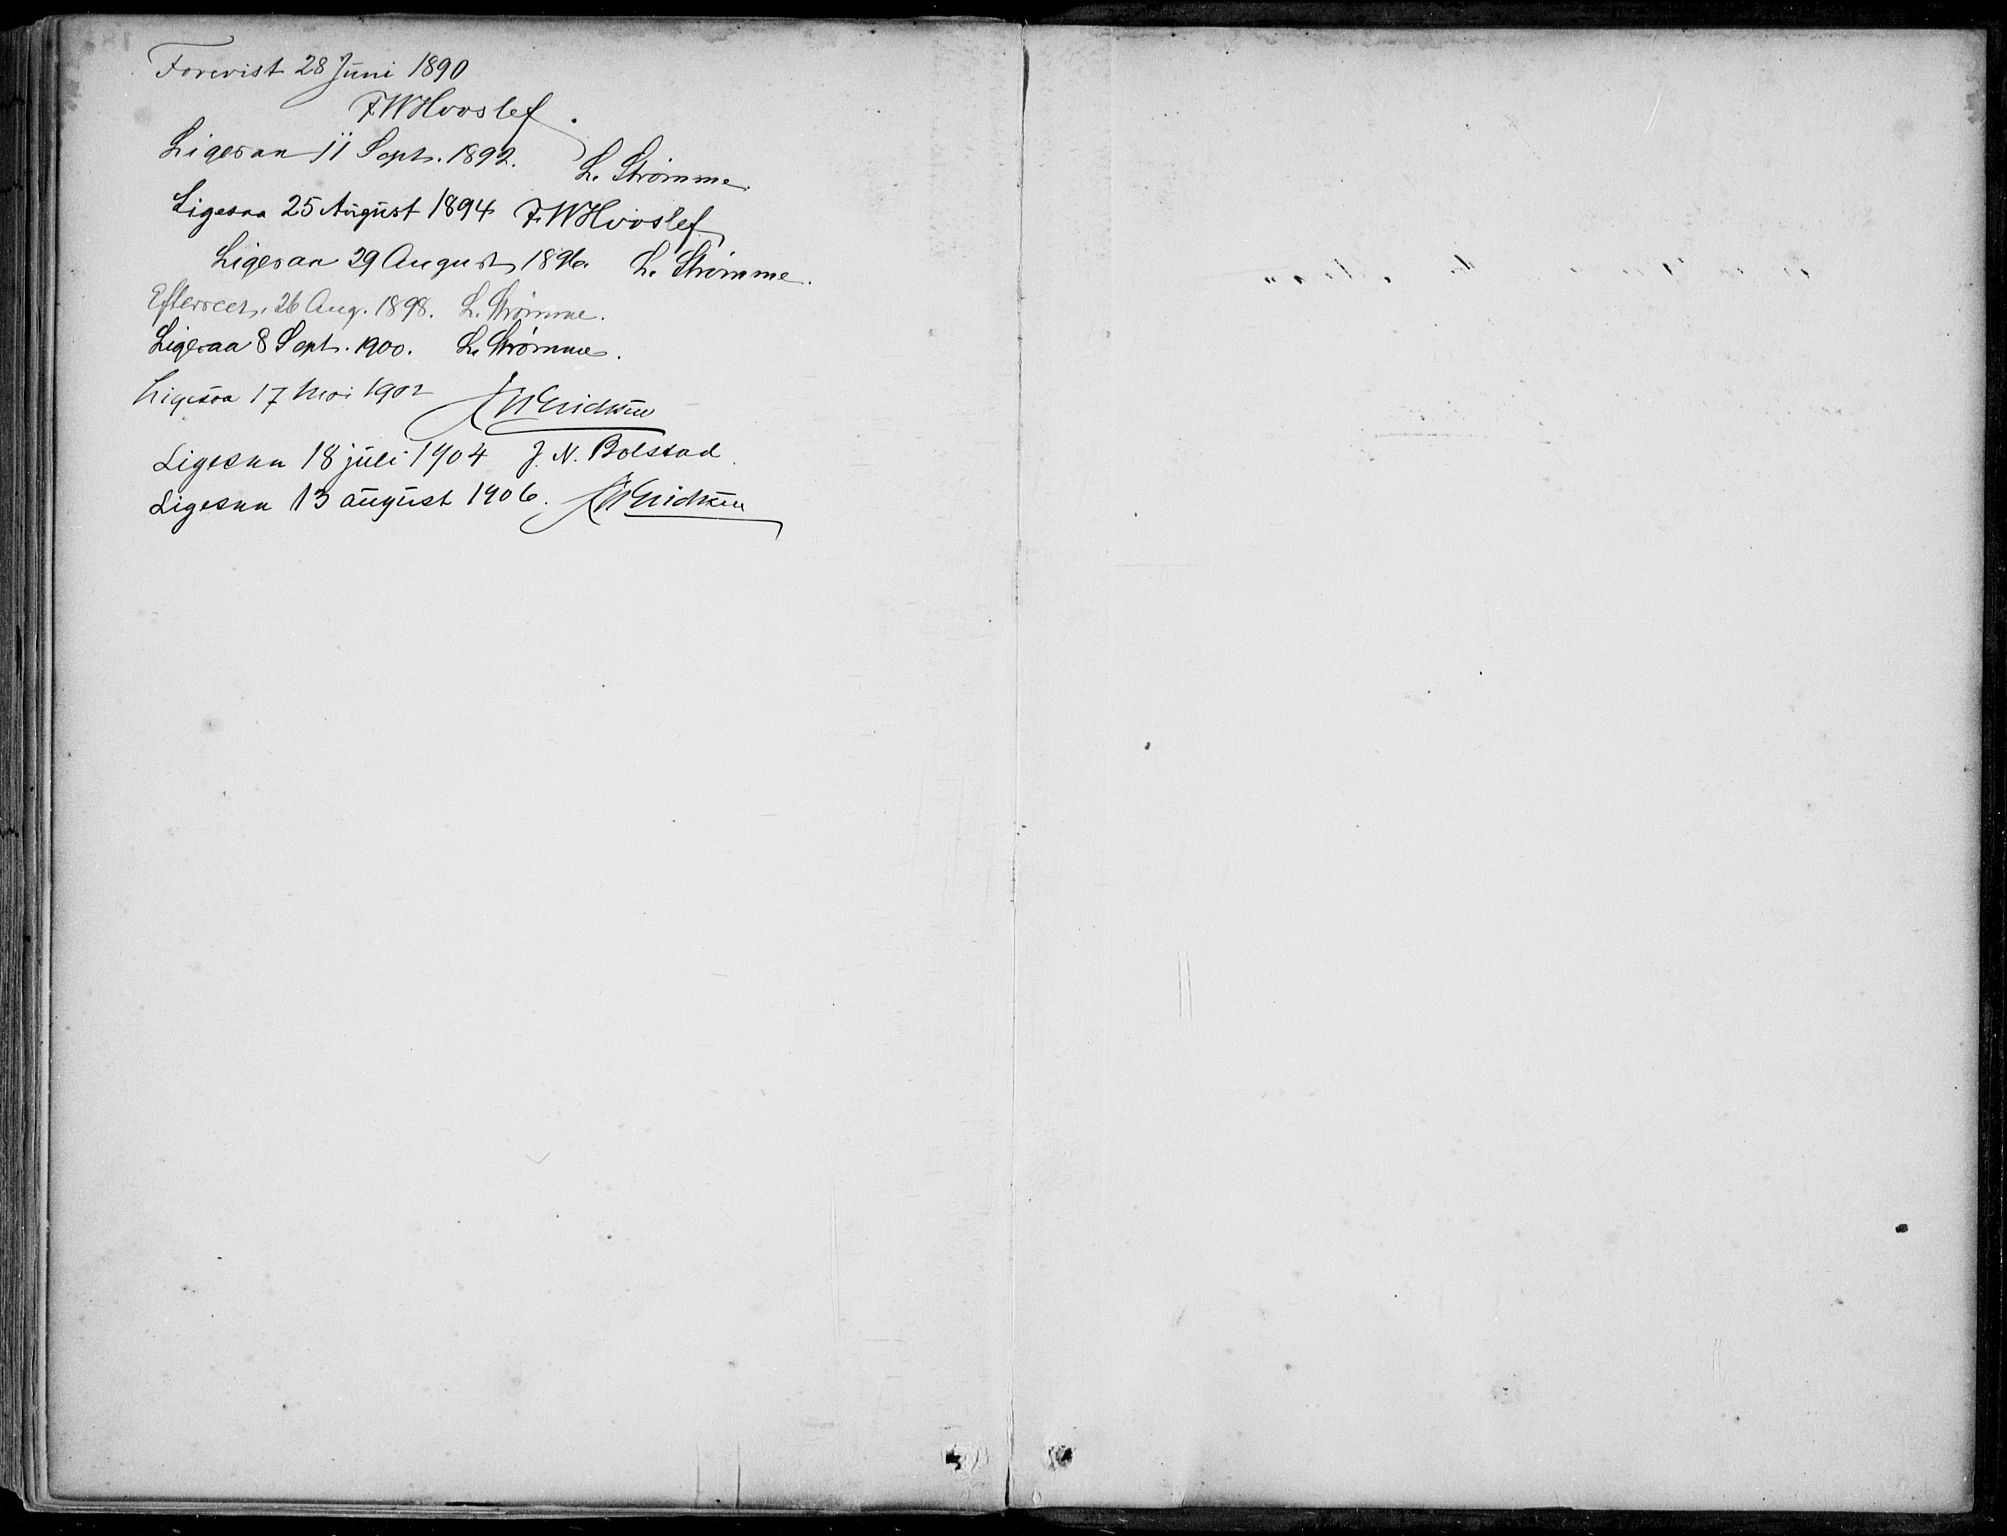 Forevist 28 Juni 1890
F.W. Hvoslef.
Ligesaa 11 Sept. 1892. L. Strømme.
Ligesaa 25 August 1894 F.W. Hvoslef
Ligesaa 29 August 1896. L. Strømme.
Efterseet, 26 Aug. 1898. L. Strømme.
Ligesaa 8 Sept. 1900. L. Strømme.
Ligesaa 17 Mai 1902 Erichsen
Ligesaa 18 juli 1904 J. N. Bolstad
Ligesaa 13 august 1906. Erichsen